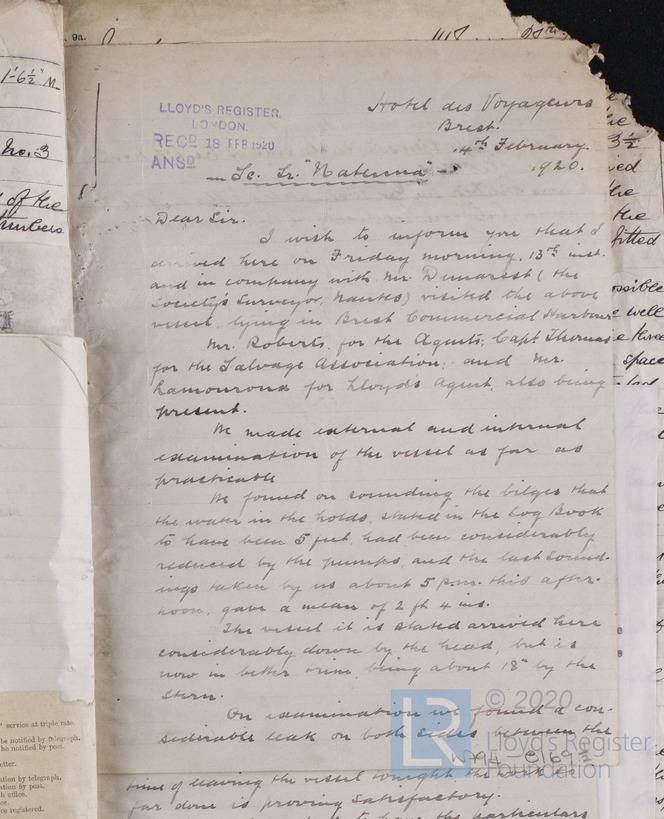 9a.
1'-6½" M
No. 3
of the
LLOYD'S REGISTER,
LONDON.
RECD 18 FEB 1920
ANSD
Hotel des Voyageurs
Brest.
14th February.
1920.
Sc. Sr. "Natenna"
Dear Sir.
I wish to inform you that I
arrived here on Friday morning, 13th inst.
and in company with Mr. Demarest (the
Society's Surveyor, Nantes) visited the above
vessel, lying in Brest Commercial Harbour
Mr. Roberts, for the Agents; Capt Thomas
for the Salvage Association; and Mr.
Lamouroux for Lloyd's Agent, also being
present.
We made external and internal
examination of the vessel as far as
practicable
We found on sounding the bilges that
the water in the holds, stated in the Log Book
to have been 5 feet, had been considerably
reduced by the pumps, and the last sound-
ings taken by us about 5 p.m. this after-
noon, gave a mean of 2 ft 4 ins.
The vessel it is stated arrived here
considerably down by the head, but is
now in better trim, being about 18" by the
stern.
On examination we found a con-
siderable leak on both sides between the
time of leaving the vessel tonight the work so
far done is proving satisfactory.
to have the particulars
3½
the
the
fitted
well
three
space
service at triple rate.
be notified by telegraph.
be notified by post.
etter.
ation by telegraph.
ation by post.
h office.
ce.
re registered.
LR
© 2020
Lloyd's Register
Foundation